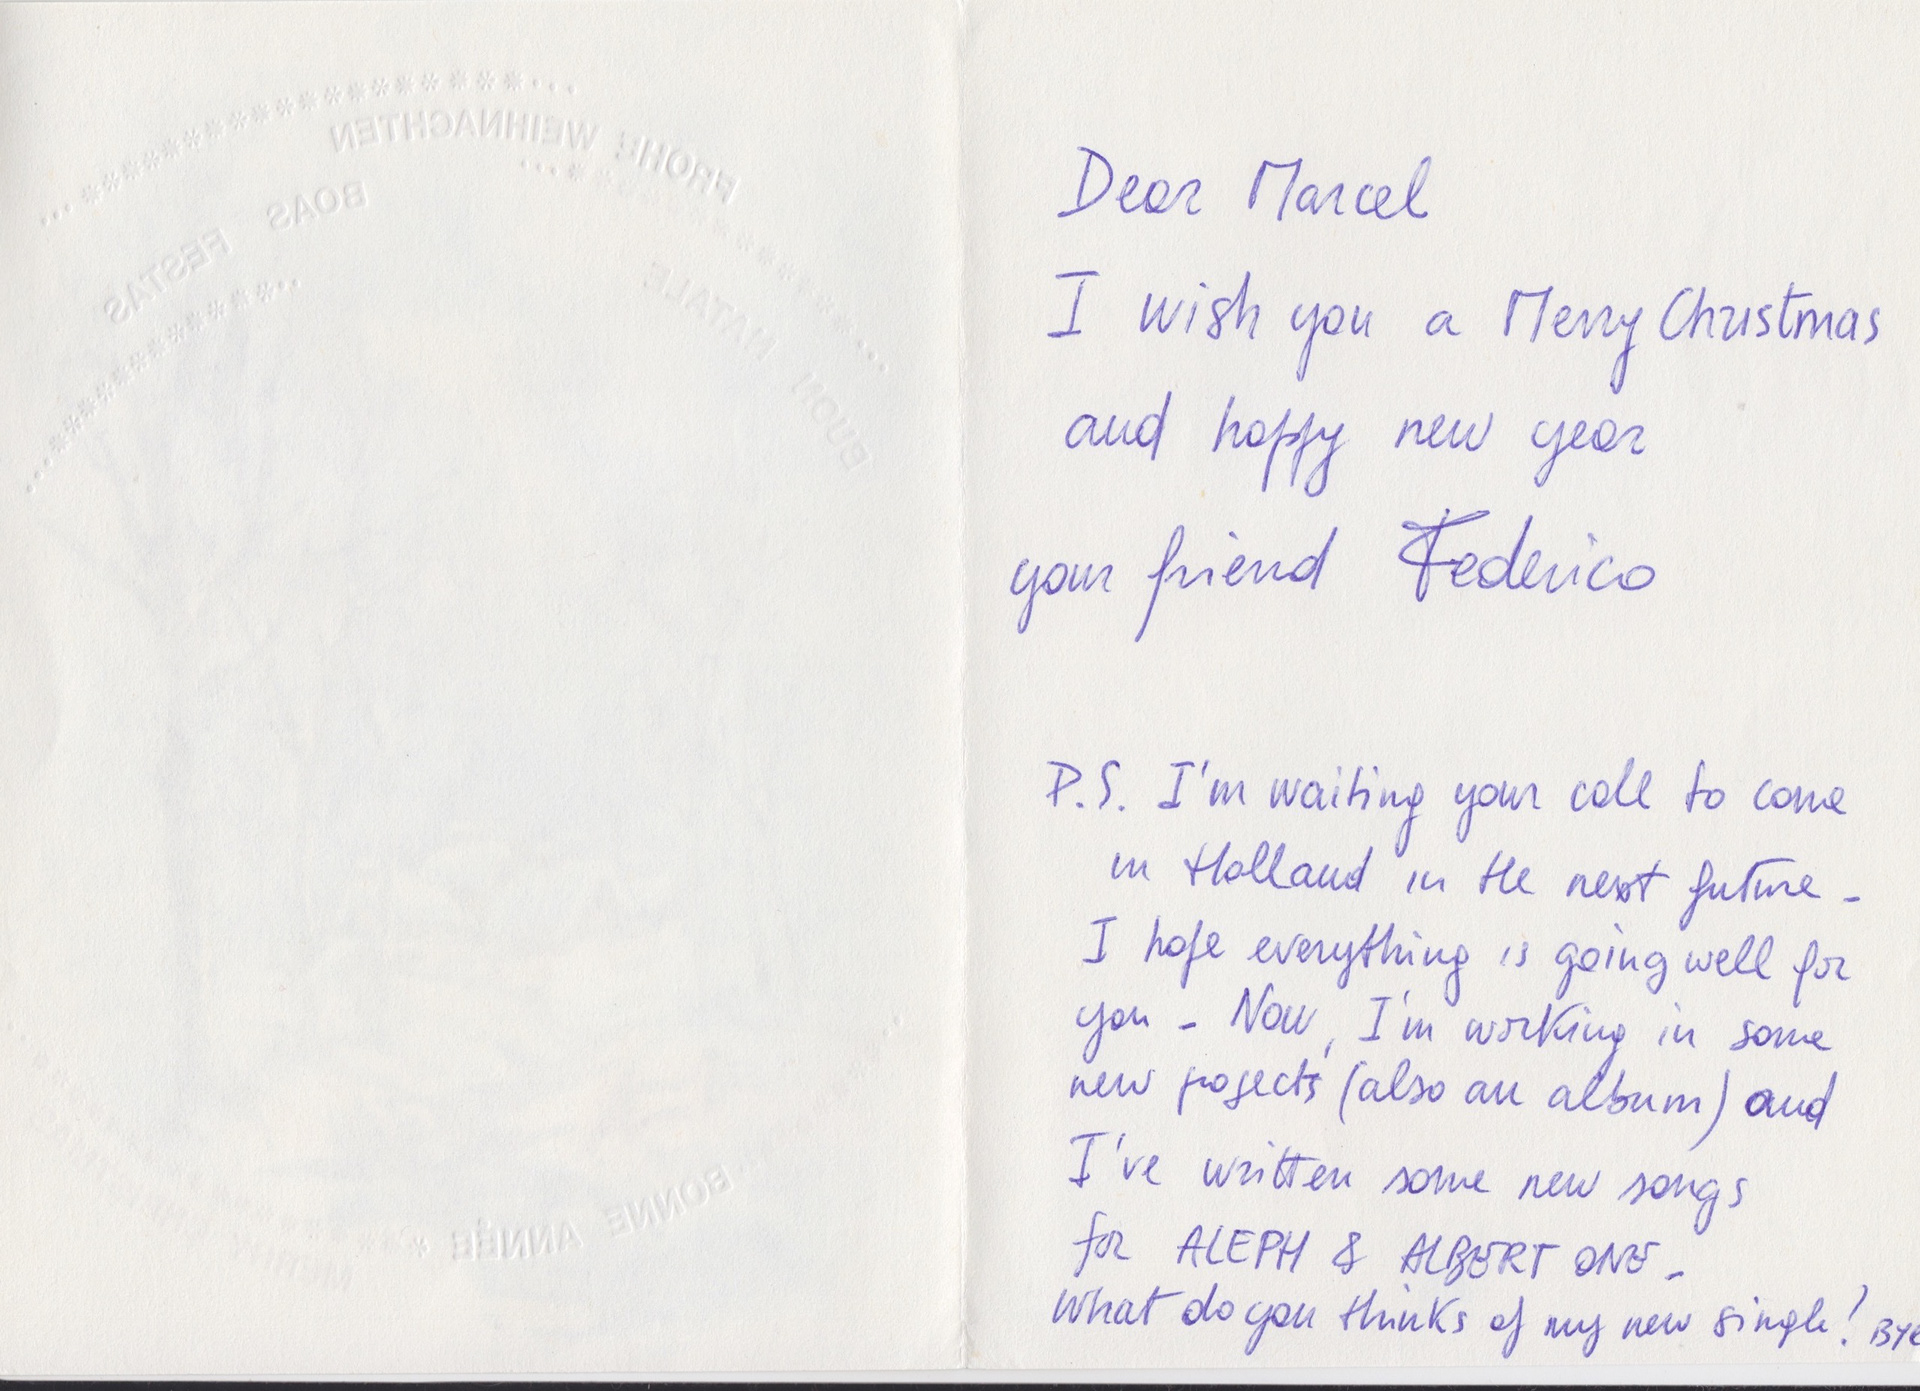 FROHE WEIHNACHTEN
BOAS FESTAS
BUON NATALE
BONNE ANNÉE
Dear Marcel
I wish you a Merry Christmas
and happy new year
your friend Federico
P.S. I'm waiting your call to come
in Holland in the next future -
I hope everything is going well for
you - Now, I'm working in some
new projects (also an album) and
I've written some new songs
for ALEPH & ALBERT ONE -
What do you thinks of my new single! BYE